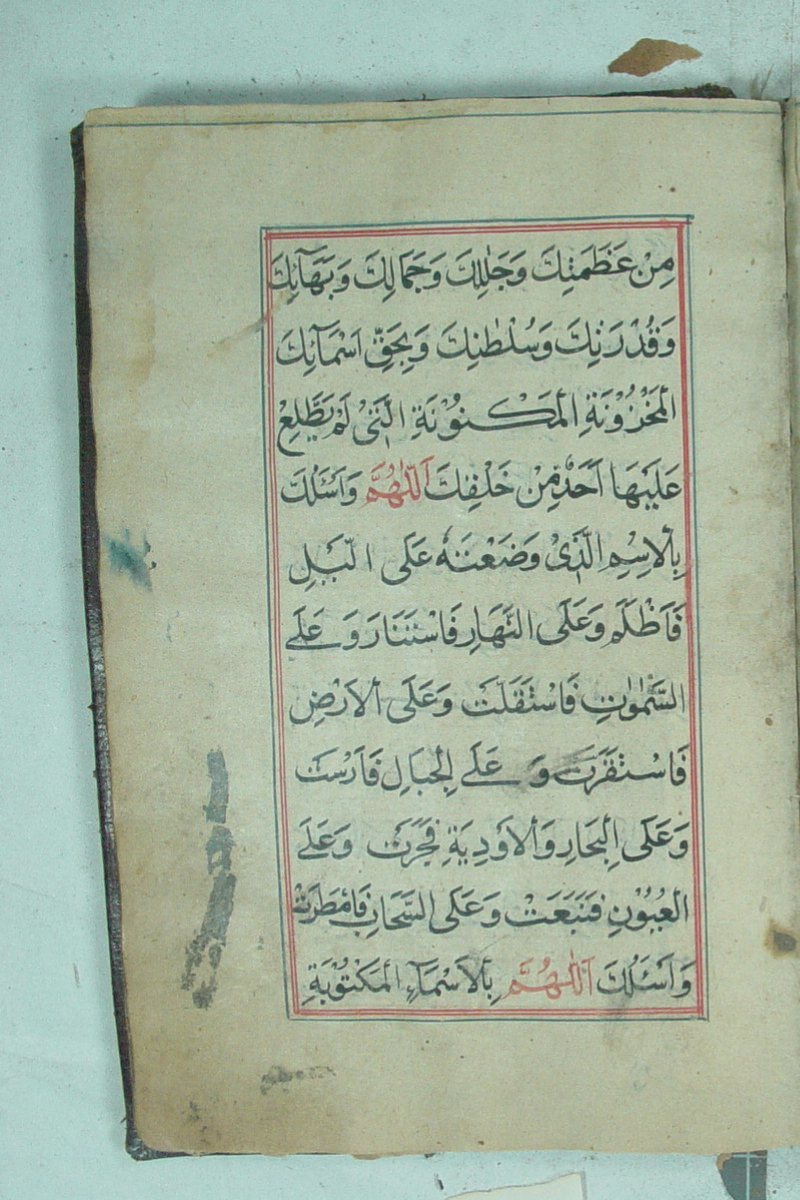 مِنْ عَظَمَتِكَ وَجَلٰلِكَ وَجَمَالِكَ وَبَهَآئِكَ
وَقُدْرَتِكَ وَسُلْطٰنِكَ وَبِحَقِّ اَسْمَآئِكَ
الْمَخْزُوْنَةِ الْمَكْنُوْنَةِ الَّتِىْ لَمْ يَطَّلِعْ
عَلَيْهَا اَحَدٌ مِنْ خَلْقِكَ اَللّٰهُمَّ وَاَسْئَلُكَ
بِالْاِسْمِ الَّذِىْ وَضَعْتَهٗ عَلَى الَّيْلِ
فَاَظْلَمَ وَعَلَى النَّهَارِ فَاسْتَنَارَ وَعَلَى
السَّمٰوٰتِ فَاسْتَقَلَّتْ وَعَلَى الْاَرْضِ
فَاسْتَقَرَّتْ وَعَلَى الْجِبَالِ فَاَرْسَتْ
وَعَلَى الْبِحَارِ وَالْاَوْدِيَةِ فَجَرَتْ وَعَلَى
الْعُيُوْنِ فَنَبَعَتْ وَعَلَى السَّحَابِ فَاَمْطَرَتْ
وَاَسْئَلُكَ اَللّٰهُمَّ بِالْاَسْمَآءِ الْمَكْتُوْبَةِ